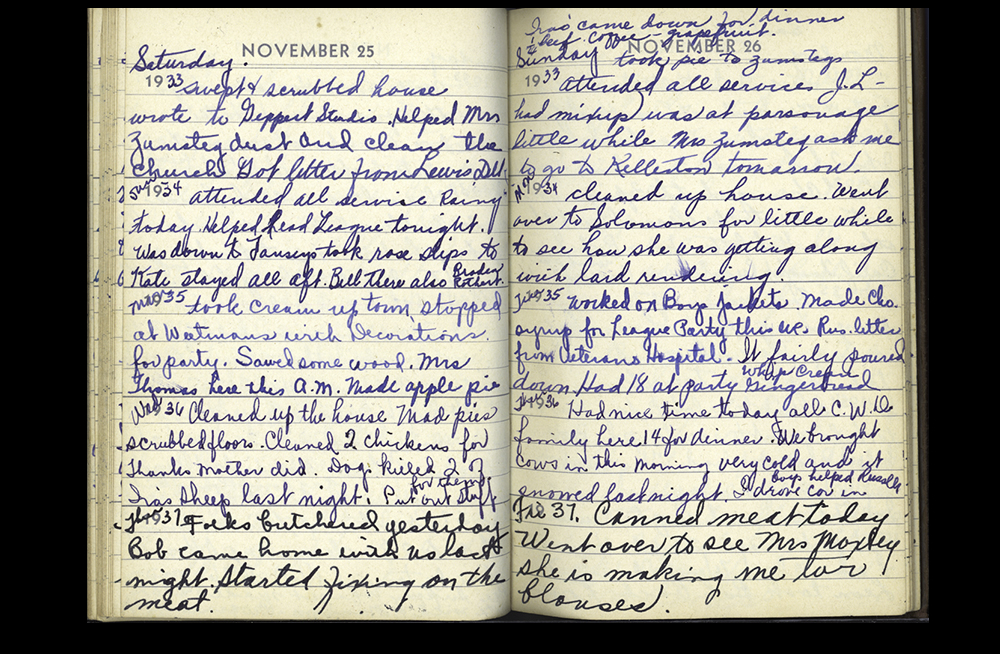 NOVEMBER 25
Saturday.
1933 swept & scrubbed house
wrote to Geppert Studio. Helped Mrs
Zumsteg dust and clean the
church. Got letter from Lewis Dell.
Sun 1934 attended all service Rainy
today. Helped lead League tonight.
Was down to Fauseys took rose slips to
Kate stayed all aft. Bill there also
Mon 35 took cream up town stopped
at Watmans with Decorations
for party. Sawed some wood. Mrs
Thomas here this A.M. Made apple pie
Wed 36 Cleaned up the house Mad pies
scrubbed floors. Cleaned 2 chickens for
Thanks Mother did. Dogs killed 2 of
for them
Ira's sheep last night. Put out stuff
Thurs 37 Folks butchered yesterday
Bob came home with us last
night. Started fixing on the
meat.
Ira's came down for dinner
& beef. Coffee - grapefruit.
NOVEMBER 26
Sunday took pie to Zumstegs
1933 attended all services J.L-
had mixup) was at parsonage
little while Mrs Zumsteg ask me
to go to Kelleston tomorrow.
Mon 1934 cleaned up house. Went
over to Solomons for little while
to see how she was getting along
with lard rendering.
Tues 35 worked on Boys jackets. Made Cho.
syrup for League Party this we. Rus. letter
from Veterans Hospital. It fairly poured
Whip Cream
down. Had 18 at party Gingerbread
1936 Had nice time today all C.W.D
family here 14 for dinner. We brought
cows in this morning very cold and it
Boys helped Russells
snowed last night. I drove car in
Fri 37. Canned meat today
Went over to see Mrs Moxley
she is making me two
blouses.